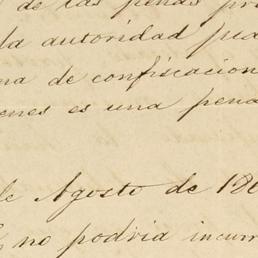 de las penas pr
la autoridad
na de confiscacion
enes es una pena
de Agosto de 186
no podria incurr